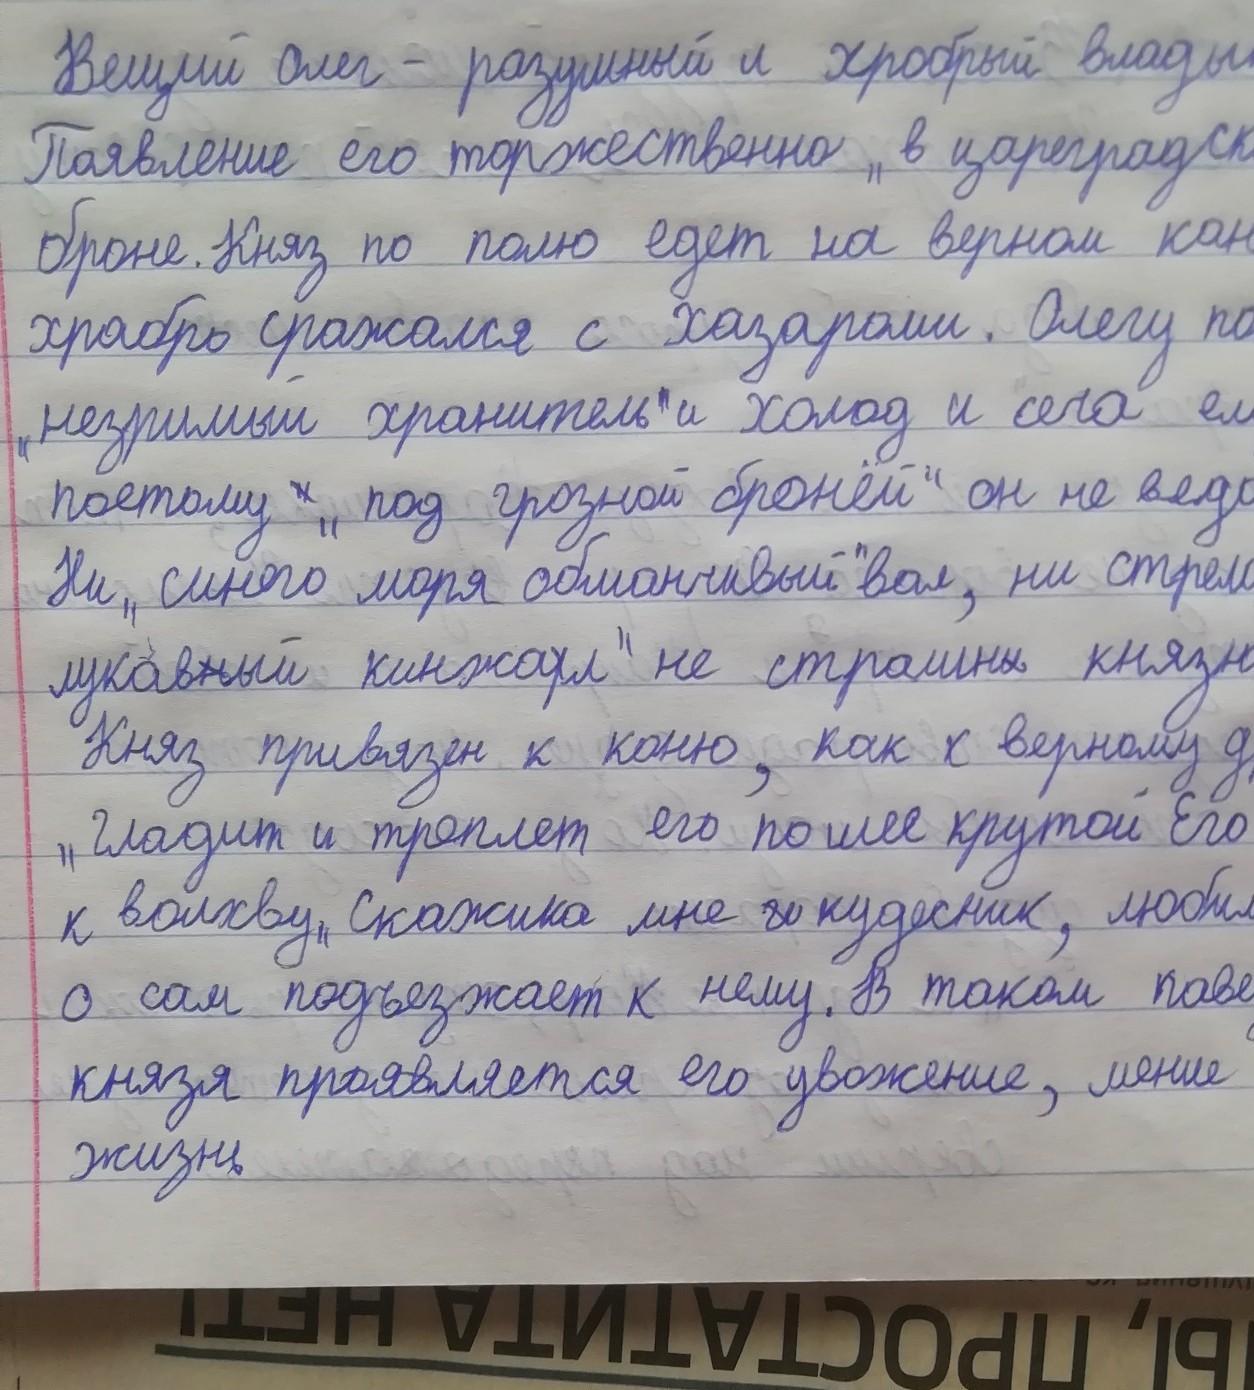 Вещий Олег - разумный и хробрый влады
Появление его торжественно „в цареградск
броне. Княз по полю едет на верном кон
храбро сражался с хазарами. Олегу по
„незримый хранитель" и холод и сеча ем
поетому „под грозной бронёй" он не вядо
Ни „синего моря обманчивый" вал, ни стрела
лукавный кинжал" не страшны князю
Княз привязен к коню, как к верному д
„Гладит и треплет его по шее крутой Его
к волхву „Скажика мне кудесник, любим
о сам подъезжает к нему. В таком пове
князя проявляется его увожение, мение
жизнь
Ы, ПРОСТАТИТА НЕТ!